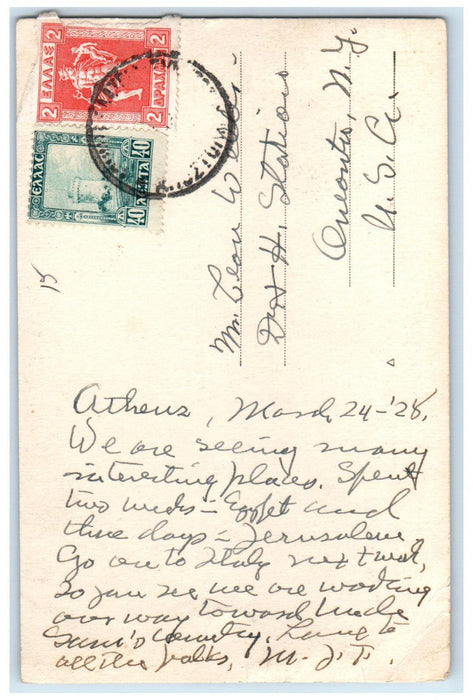 2 ΕΛΛΑΣ 2
ΔΡΑΧΜΑΙ
ΕΛΛΑΣ
40 ΛΕΠΤΑ 40
15
Mr. Leon W
D & H. Station
Oneonta, N.Y.
U.S.A.
Athens, March 24-'28.
We are seeing many
interesting places. Spent
two weeks - Egypt and
three days - Jerusalem.
Go on to Italy next week,
So you see we are working
our way toward Uncle
Sam's Country. Love to
all the folks, M.J.T.